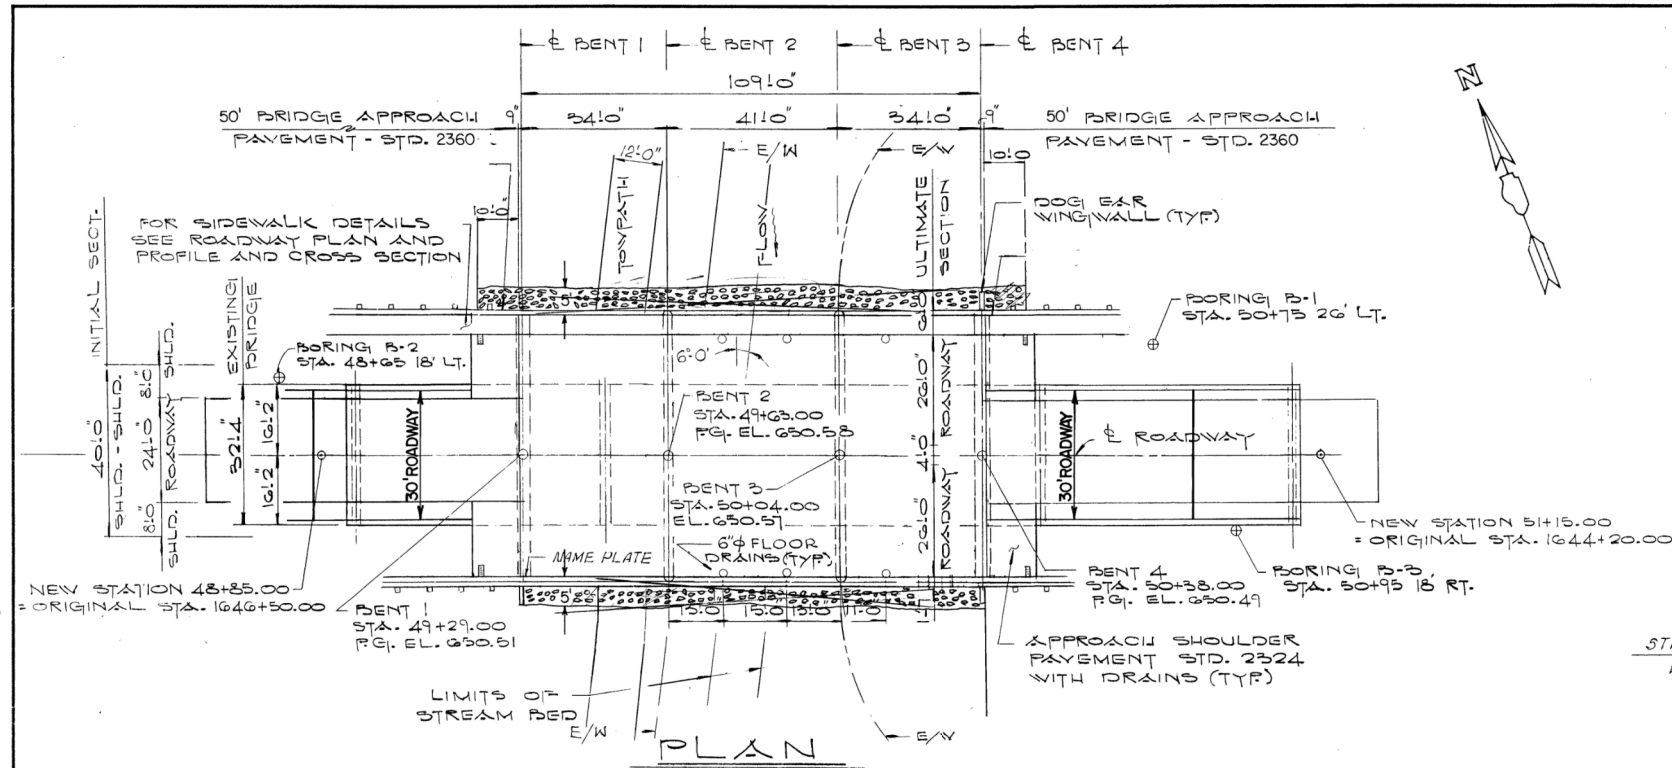 ℄ BENT 1
℄ BENT 2
℄ BENT 3
℄ BENT 4
109'-0"
N
50' BRIDGE APPROACH
PAVEMENT - STD. 2360
9"
34'-0"
41'-0"
34'-0"
9"
50' BRIDGE APPROACH
PAVEMENT - STD. 2360
12'-0"
E/W
E/W
10'-0
10'-0"
TOWPATH
FLOW
ULTIMATE
SECTION
DOG EAR
WINGWALL (TYP.)
FOR SIDEWALK DETAILS
SEE ROADWAY PLAN AND
PROFILE AND CROSS SECTION
INITIAL SECT.
EXISTING
BRIDGE
5'
6'-8"
BORING B-1
STA. 50+75 26' LT.
BORING B-2
STA. 48+65 18' LT.
6'-0'
40'-0"
SHLD. - SHLD.
8'-0"
SHLD.
24'-0"
ROADWAY
8'-0"
SHLD.
32'-4"
16'-2"
16'-2"
30' ROADWAY
BENT 2
STA. 49+63.00
P.G. EL. 650.58
26'-0"
ROADWAY
4'-0"
26'-0"
ROADWAY
30' ROADWAY
℄ ROADWAY
BENT 3
STA. 50+04.00
EL. 650.57
6"φ FLOOR
DRAINS (TYP.)
NAME PLATE
NEW STATION 51+15.00
= ORIGINAL STA. 1644+20.00
NEW STATION 48+85.00
= ORIGINAL STA. 1646+50.00
BENT 1
STA. 49+29.00
P.G. EL. 650.51
BENT 4
STA. 50+38.00
P.G. EL. 650.49
BORING B-3
STA. 50+95 18' RT.
5'
15'-0"
15'-0"
15'-0"
11'-0"
APPROACH SHOULDER
PAVEMENT STD. 2324
WITH DRAINS (TYP.)
LIMITS OF
STREAM BED
E/W
E/W
PLAN